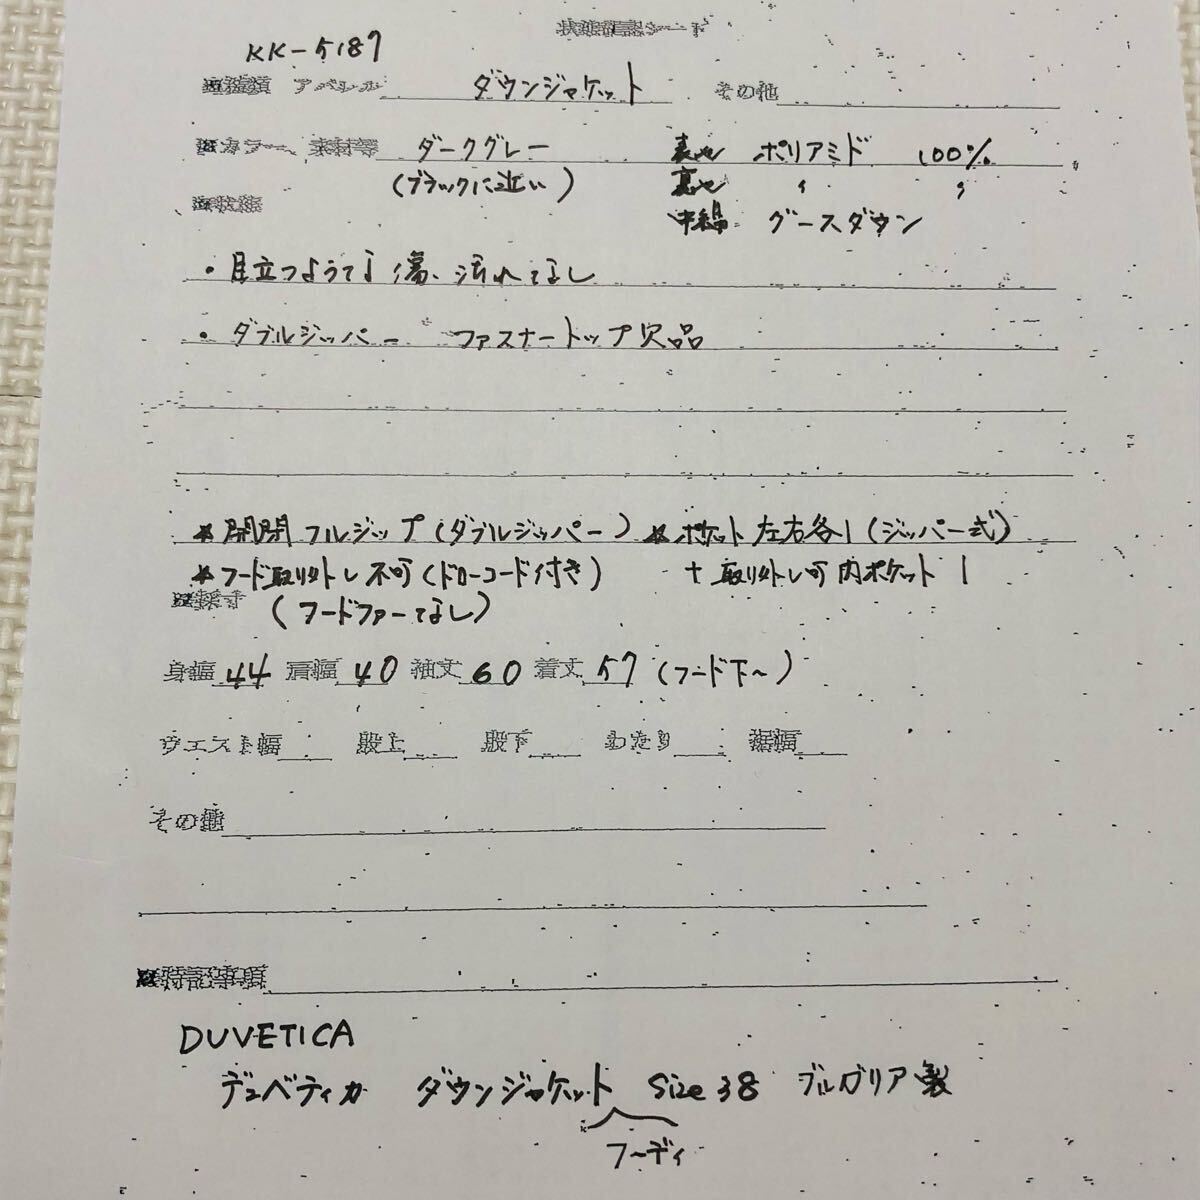 状態確認シート
KK-5187
※種類 アパレル ダウンジャケット その他
※カラー、素材等 ダークグレー 表地 ポリアミド 100%
(ブラックに近い) 裏地 〃 〃
※状態 中綿 グースダウン
・目立つような傷、汚れなし
・ダブルジッパー ファスナートップ欠品
* 開閉 フルジップ(ダブルジッパー) * ポケット左右各1(ジッパー式)
* フード取り外し不可(ドローコード付き) + 取り外し可内ポケット1
※採寸 (フードファーなし)
身幅 44 肩幅 40 袖丈 60 着丈 57 (フード下～)
ウエスト幅 股上 股下 わたり 裾幅
その他
※特記事項
DUVETICA
デュベティカ ダウンジャケット size 38 ブルガリア製
フーディ